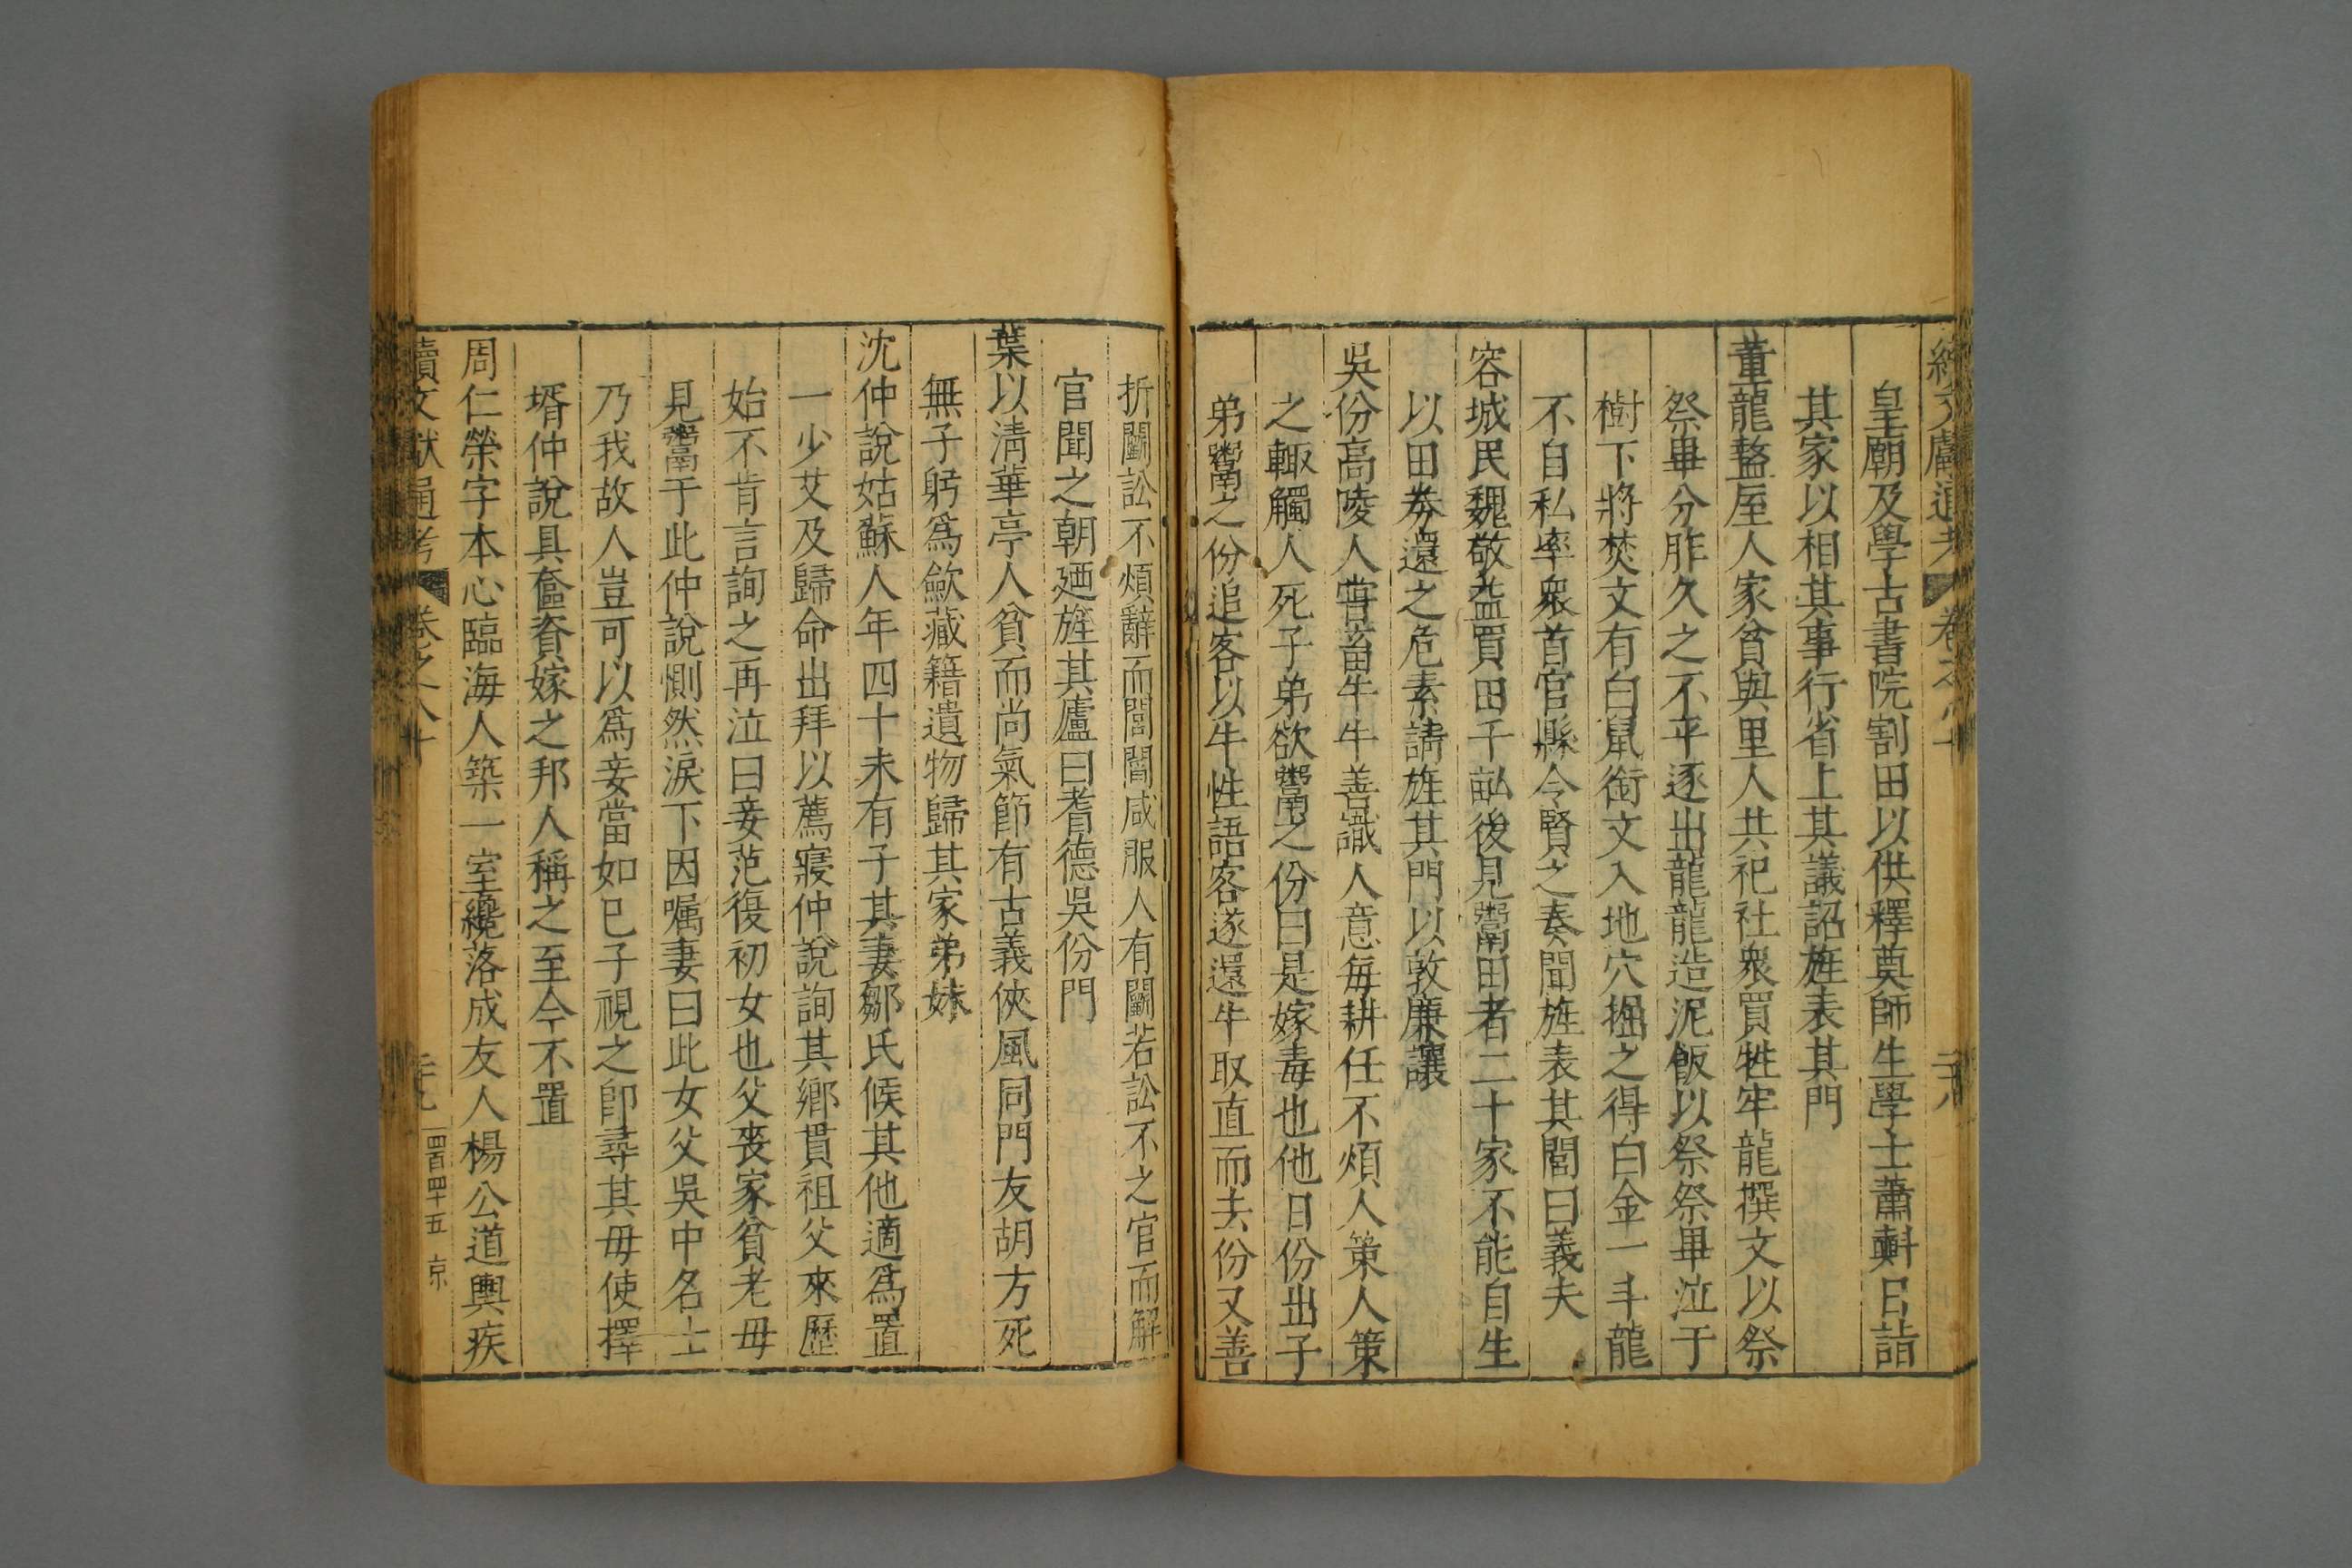 續文獻通考 卷之八十 三十八
皇廟及學古書院割田以供釋奠師生學士蕭㪺呂誼
其家以相其事行省上其議詔旌表其門
董龍盩厔人家貧與里人共祀社衆買牲牢龍撰文以祭
祭畢分胙久之不平逐出龍龍造泥飯以祭祭畢泣于
樹下將焚文有白鼠銜文入地穴掘之得白金一斗龍
不自私率衆首官縣令賢之奏聞旌表其閭曰義夫
容城民魏敬益買田千畝後見鬻田者二十家不能自生
以田券還之危素請旌其門以敦廉讓
吳份高陵人嘗畜牛牛善識人意每耕任不煩人策人策
之輙觸人死子弟欲鬻之份曰是嫁毒也他日份出子
弟鬻之份追客以牛性語客遂還牛取直而去份又善
折鬬訟不煩辭而閭閻咸服人有鬬若訟不之官而解
官聞之朝廼旌其廬曰耆德吳份門
葉以清華亭人貧而尚氣節有古義俠風同門友胡方死
無子躬爲歛藏籍遺物歸其家弟妹
沈仲說姑蘇人年四十未有子其妻鄒氏候其他適爲置
一少艾及歸命出拜以薦寢仲說詢其鄉貫祖父來歷
始不肯言詢之再泣曰妾范復初女也父喪家貧老母
見鬻于此仲說惻然淚下因嘱妻曰此女父吳中名士
乃我故人豈可以爲妾當如已子視之卽尋其母使擇
壻仲說具奩資嫁之邦人稱之至今不置
周仁榮字本心臨海人築一室纔落成友人楊公道輿疾
續文獻通考 卷之八十 三十九 四百四十五 京